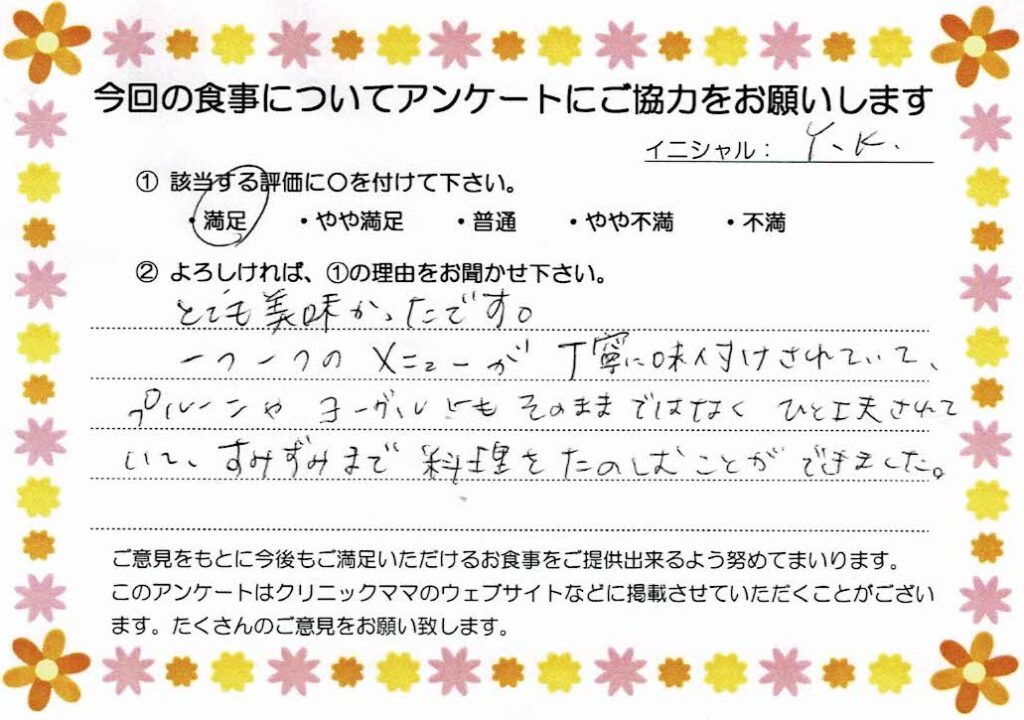 今回の食事についてアンケートにご協力をお願いします
イニシャル： Y.K.
① 該当する評価に〇を付けて下さい。
・満足 ・やや満足 ・普通 ・やや不満 ・不満
② よろしければ、①の理由をお聞かせ下さい。
とても美味かったです。
一つ一つのメニューが丁寧に味付けされていて、
プルーンやヨーグルトもそのままではなくひと工夫されて
いて、すみずみまで料理をたのしむことができました。
ご意見をもとに今後もご満足いただけるお食事をご提供出来るよう努めてまいります。
このアンケートはクリニックママのウェブサイトなどに掲載させていただくことがござい
ます。たくさんのご意見をお願い致します。